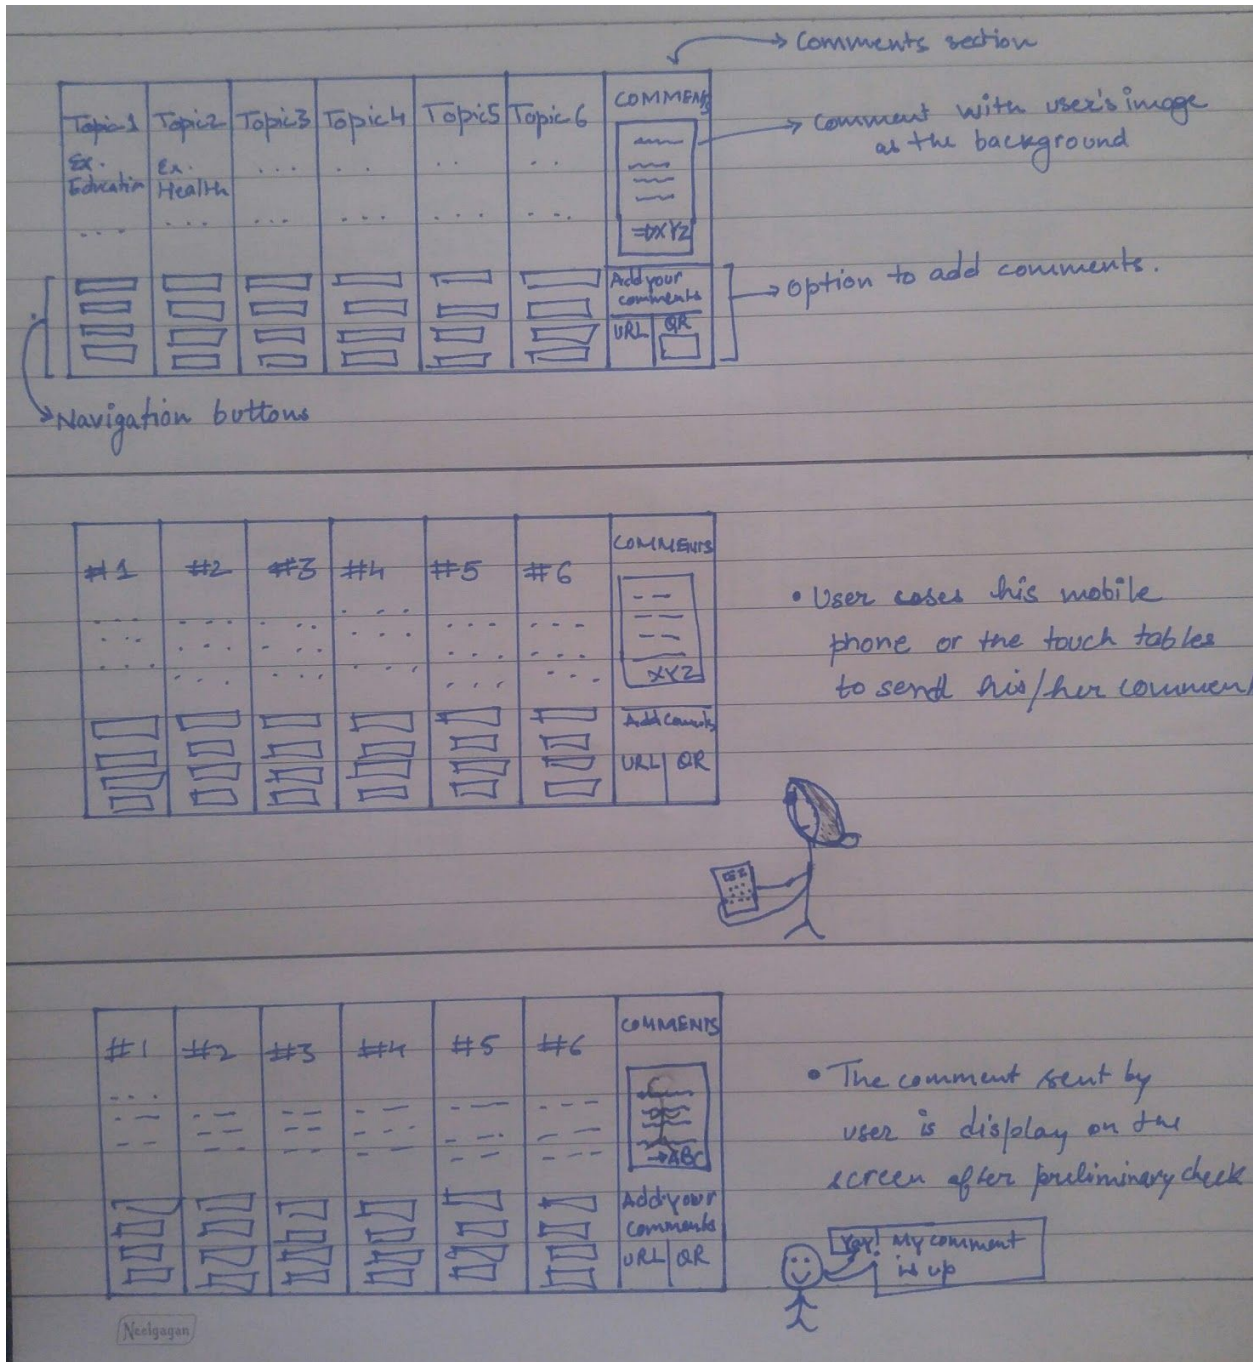 Comments section
Topic 1 Topic 2 Topic 3 Topic 4 Topic 5 Topic 6 COMMENTS
Ex. Education
Ex. Health
Comment with user's image
as the background
⇒ XYZ
Add your
comments
URL QR
Option to add comments.
Navigation buttons
#1 #2 #3 #4 #5 #6 COMMENTS
XYZ
URL QR
• User uses his mobile
phone or the touch tables
to send his/her comment
#1 #2 #3 #4 #5 #6 COMMENTS
→ABC
Add your
comments
URL QR
• The comment sent by
user is display on the
screen after preliminary check
Yay! My comment
is up
Neelgagan